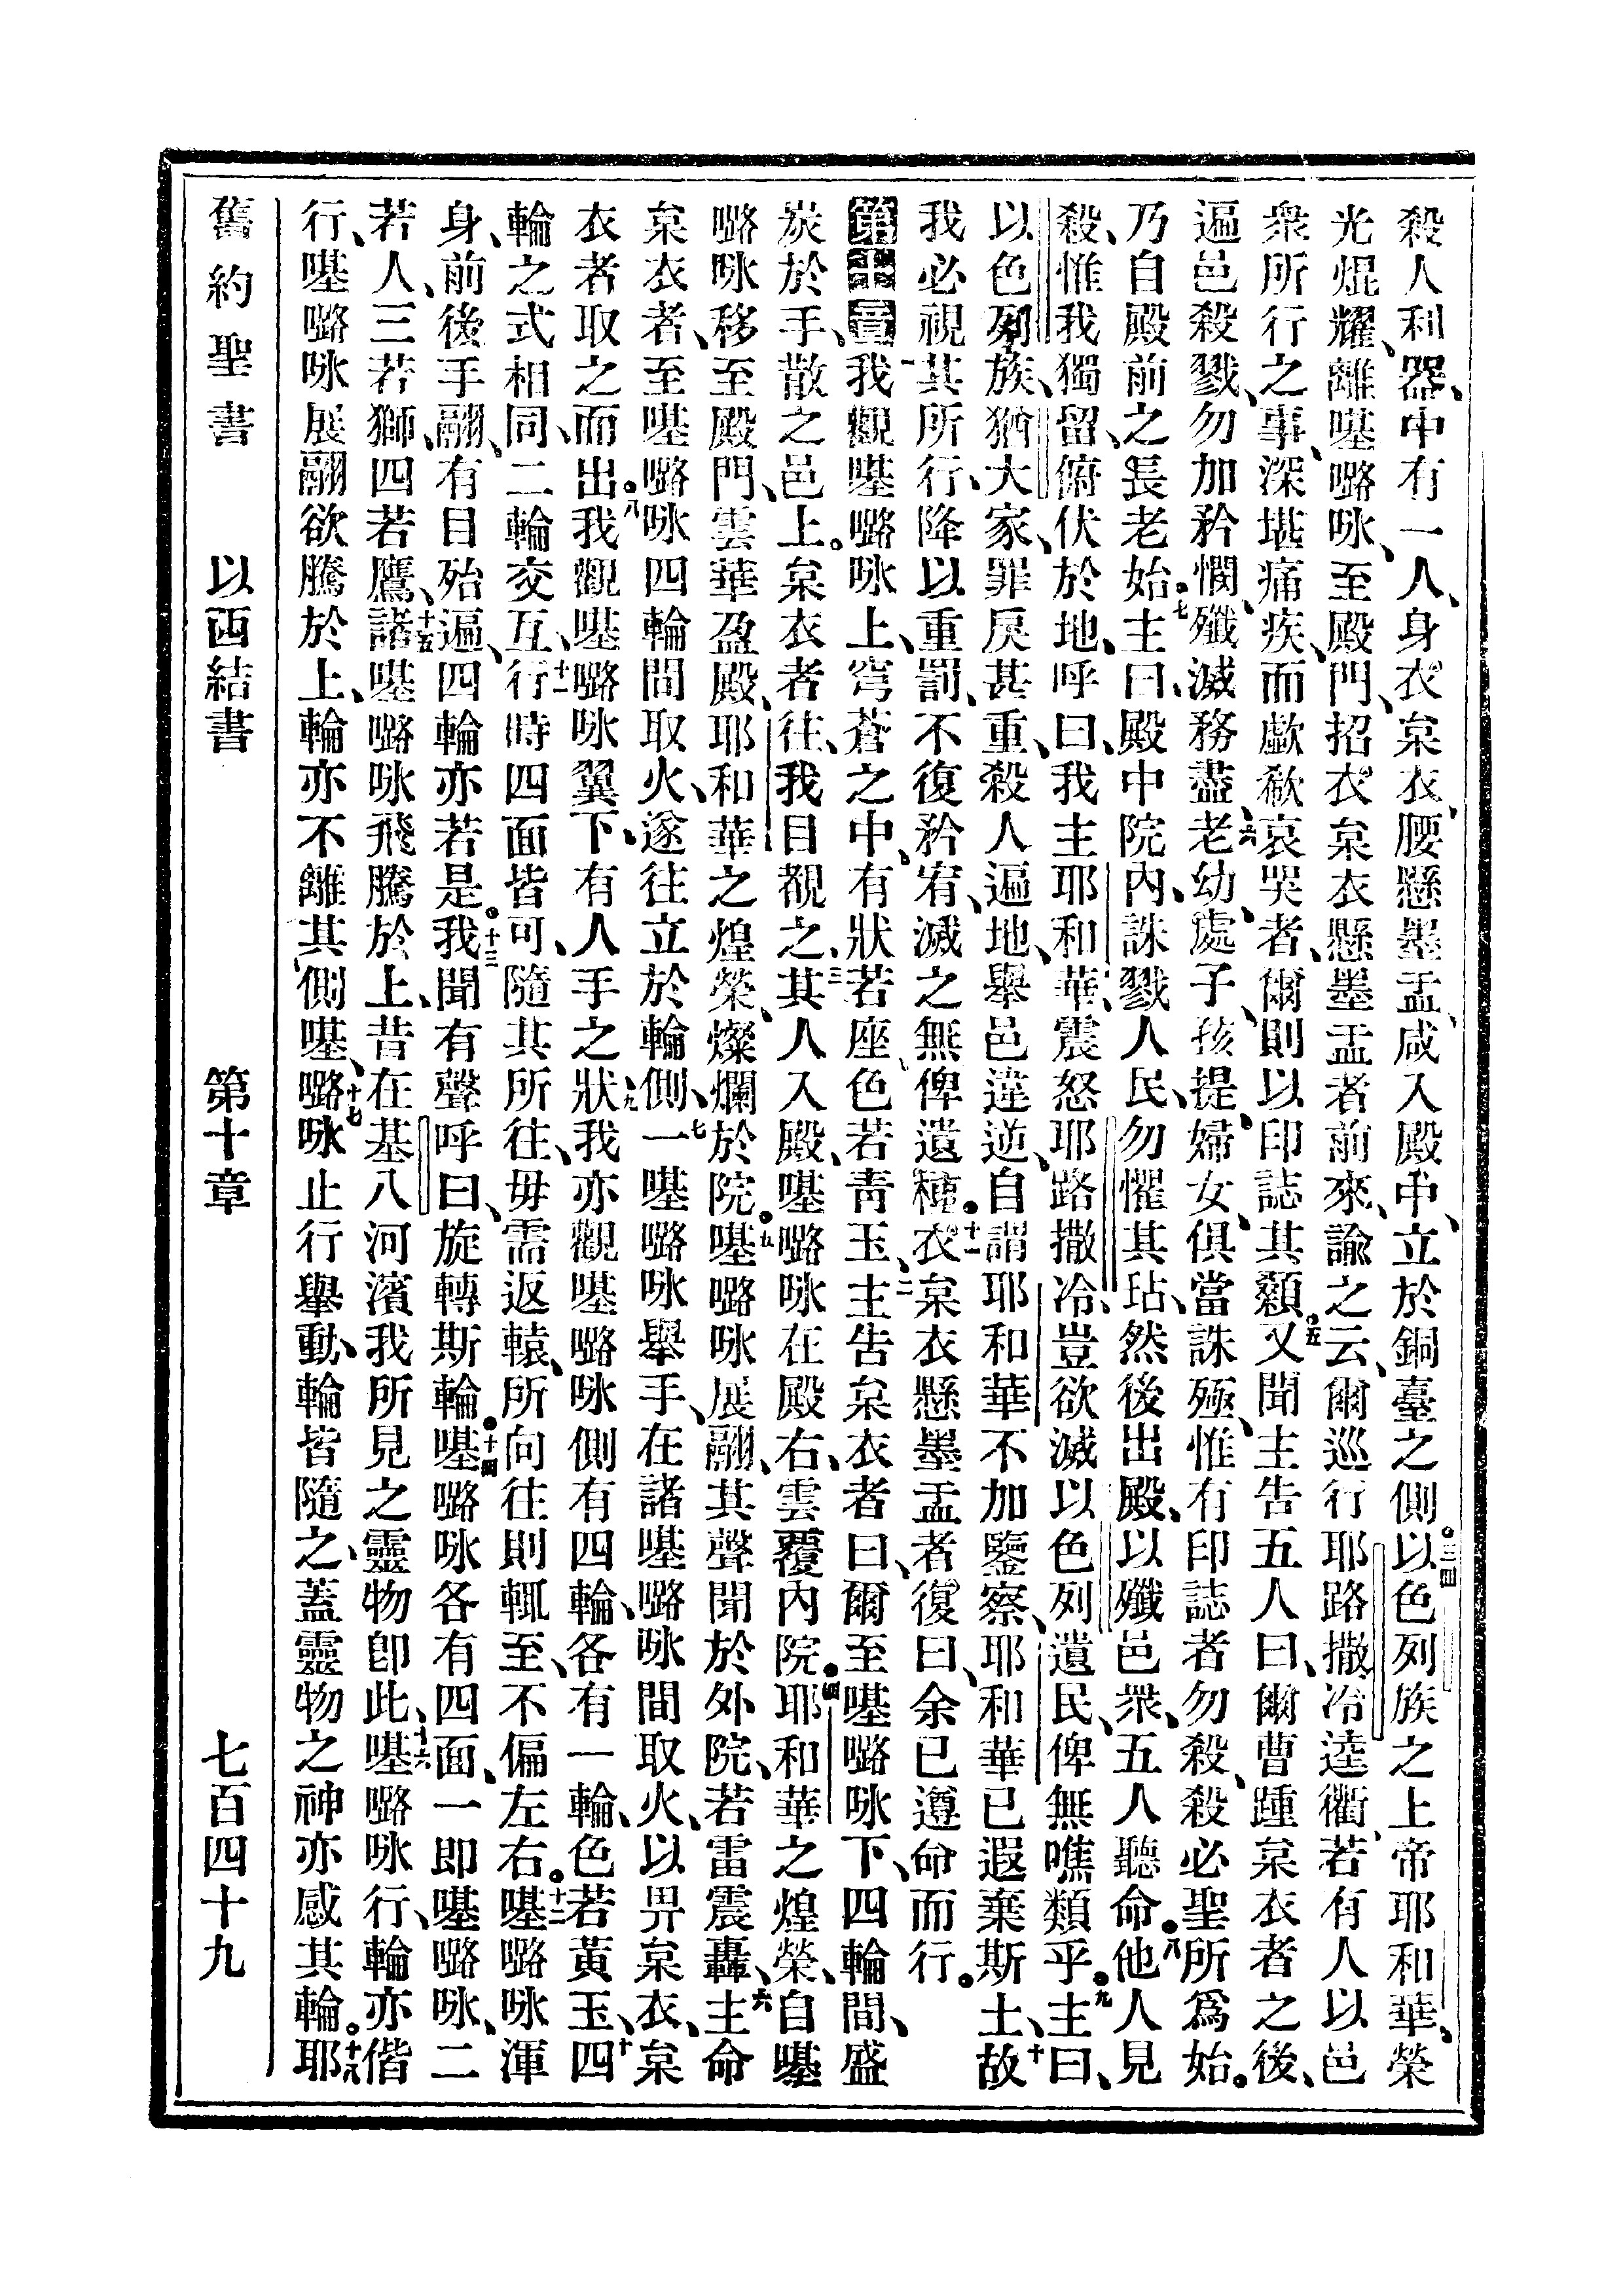 殺人利器、中有一人、身衣枲衣、腰懸墨盂、咸入殿中、立於銅臺之側。三四以色列族之上帝耶和華、榮
光焜耀、離𠼻嚧咏、至殿門、招衣枲衣懸墨盂者前來、諭之云、爾巡行耶路撒冷逵衢、若有人以邑
衆所行之事、深堪痛疾、而歔欷哀哭者、爾則以印誌其顙。五又聞主告五人曰、爾曹踵枲衣者之後、
遍邑殺戮、勿加矜憫、殲滅務盡、六老幼、處子、孩提、婦女、俱當誅殛、惟有印誌者勿殺、殺必聖所爲始。
乃自殿前之長老始。七主曰、殿中院內、誅戮人民、勿懼其玷、然後出殿、以殲邑衆、五人聽命。八他人見
殺、惟我獨留、俯伏於地、呼曰、我主耶和華、震怒耶路撒冷、豈欲滅以色列遺民、俾無噍類乎。九主曰、
以色列族、猶大家、罪戾甚重、殺人遍地、舉邑違逆、自謂耶和華不加鑒察、耶和華已遐棄斯土、十故
我必視其所行、降以重罰、不復矜宥、滅之無俾遺種。十一衣枲衣懸墨盂者、復曰、余已遵命而行。
第十章一我觀𠼻嚧咏上、穹蒼之中、有狀若座、色若靑玉、二主告枲衣者曰、爾至𠼻嚧咏下、四輪間、盛
炭於手、散之邑上。枲衣者往、我目覩之、三其人入殿、𠼻嚧咏在殿右、雲覆內院。四耶和華之煌榮、自𠼻
嚧咏移至殿門、雲華盈殿、耶和華之煌榮、燦爛於院。五𠼻嚧咏展翮、其聲聞於外院、若雷震轟、六主命
枲衣者、至𠼻嚧咏四輪間取火、遂往立於輪側、七一𠼻嚧咏舉手、在諸𠼻嚧咏間取火、以畀枲衣、枲
衣者取之而出。八我觀𠼻嚧咏翼下、有人手之狀、九我亦觀𠼻嚧咏側有四輪、各有一輪、色若黃玉、十四
輪之式相同、二輪交互、十一行時四面皆可、隨其所往、毋需返轅、所向往則輒至、不偏左右。十二𠼻嚧咏渾
身、前後手翮、有目殆遍、四輪亦若是。十三我聞有聲呼曰、旋轉斯輪。十四𠼻嚧咏各有四面、一卽𠼻嚧咏、二
若人、三若獅、四若鷹、十五諸𠼻嚧咏飛騰於上、昔在基八河濱、我所見之靈物卽此、十六𠼻嚧咏行、輪亦偕
行、𠼻嚧咏展翮欲騰於上、輪亦不離其側、十七𠼻嚧咏止行舉動、輪皆隨之、蓋靈物之神亦感其輪。十八耶
舊約聖書 以西結書 第十章 七百四十九